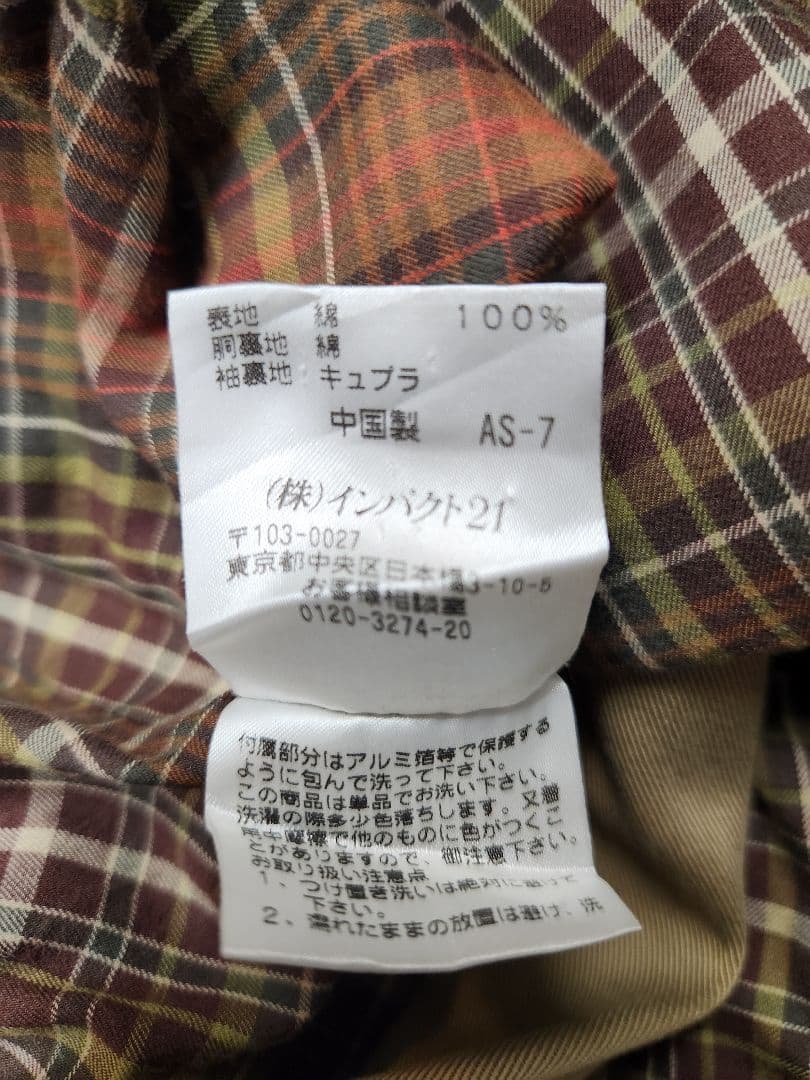 表地 綿 100%
胴裏地 綿
袖裏地 キュプラ
中国製 AS-7
(株)インパクト21
〒103-0027
東京都中央区日本橋3-10-5
お客様相談室
0120-3274-20
付属部分はアルミ箔等で保護する
ように包んで洗って下さい。
この商品は単品でお洗い下さい。
洗濯の際多少色落ちします。又着
用中摩擦で他のものに色がつくこ
とがありますので、御注意下さい。
お取り扱い注意点
1、つけ置き洗いは絶対に避けて
下さい。
2、濡れたままの放置は避け、洗